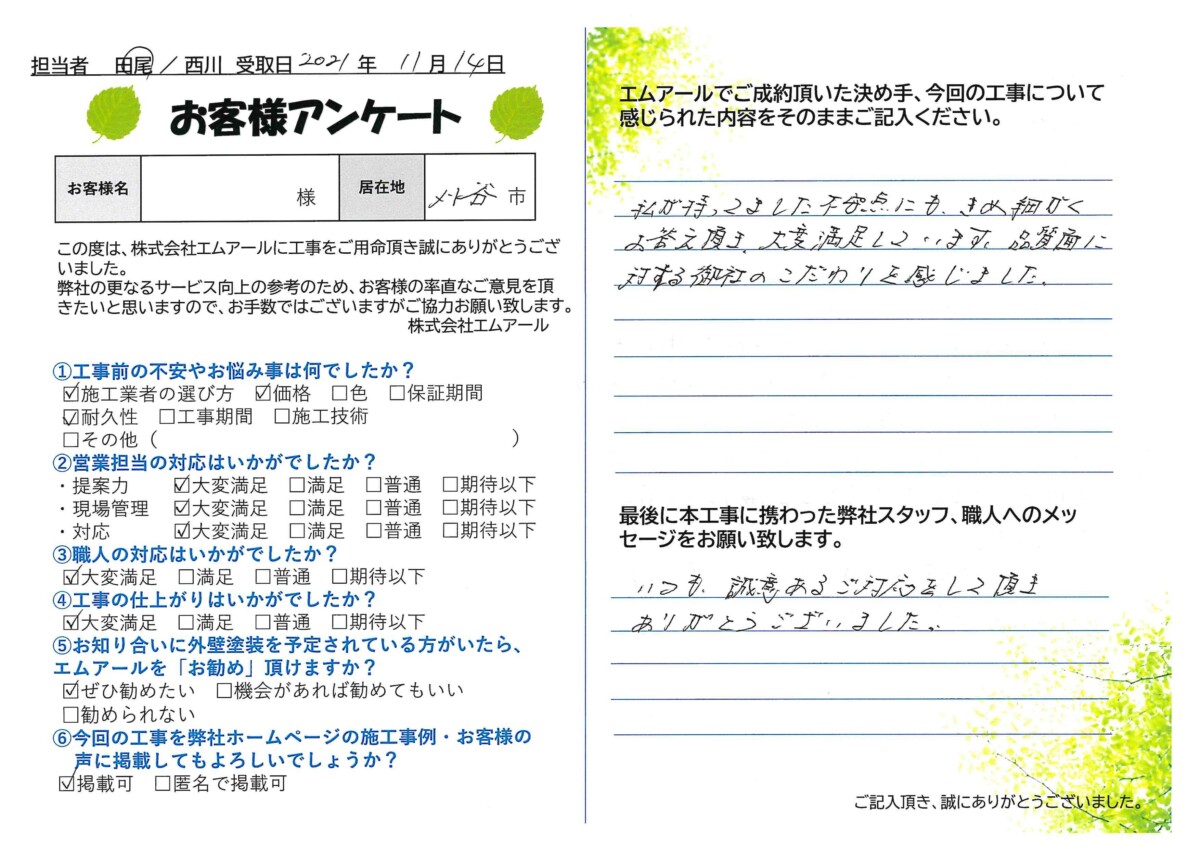 担当者 田尾／西川 受取日 2021 年 11 月 14 日
お客様アンケート
お客様名 様 居在地 刈谷 市
この度は、株式会社エムアールに工事をご用命頂き誠にありがとうござ
いました。
弊社の更なるサービス向上の参考のため、お客様の率直なご意見を頂
きたいと思いますので、お手数ではございますがご協力お願い致します。
株式会社エムアール
①工事前の不安やお悩み事は何でしたか？
☑施工業者の選び方 ☑価格 □色 □保証期間
☑耐久性 □工事期間 □施工技術
□その他（ ）
②営業担当の対応はいかがでしたか？
・提案力 ☑大変満足 □満足 □普通 □期待以下
・現場管理 ☑大変満足 □満足 □普通 □期待以下
・対応 ☑大変満足 □満足 □普通 □期待以下
③職人の対応はいかがでしたか？
☑大変満足 □満足 □普通 □期待以下
④工事の仕上がりはいかがでしたか？
☑大変満足 □満足 □普通 □期待以下
⑤お知り合いに外壁塗装を予定されている方がいたら、
エムアールを「お勧め」頂けますか？
☑ぜひ勧めたい □機会があれば勧めてもいい
□勧められない
⑥今回の工事を弊社ホームページの施工事例・お客様の
声に掲載してもよろしいでしょうか？
☑掲載可 □匿名で掲載可
エムアールでご成約頂いた決め手、今回の工事について
感じられた内容をそのままご記入ください。
私が持ってました不安点にも、きめ細かく
お答え頂き、大変満足しています。品質面に
対する御社のこだわりを感じました。
最後に本工事に携わった弊社スタッフ、職人へのメッ
セージをお願い致します。
いつも、誠意あるご対応をして頂き
ありがとうございました。
ご記入頂き、誠にありがとうございました。